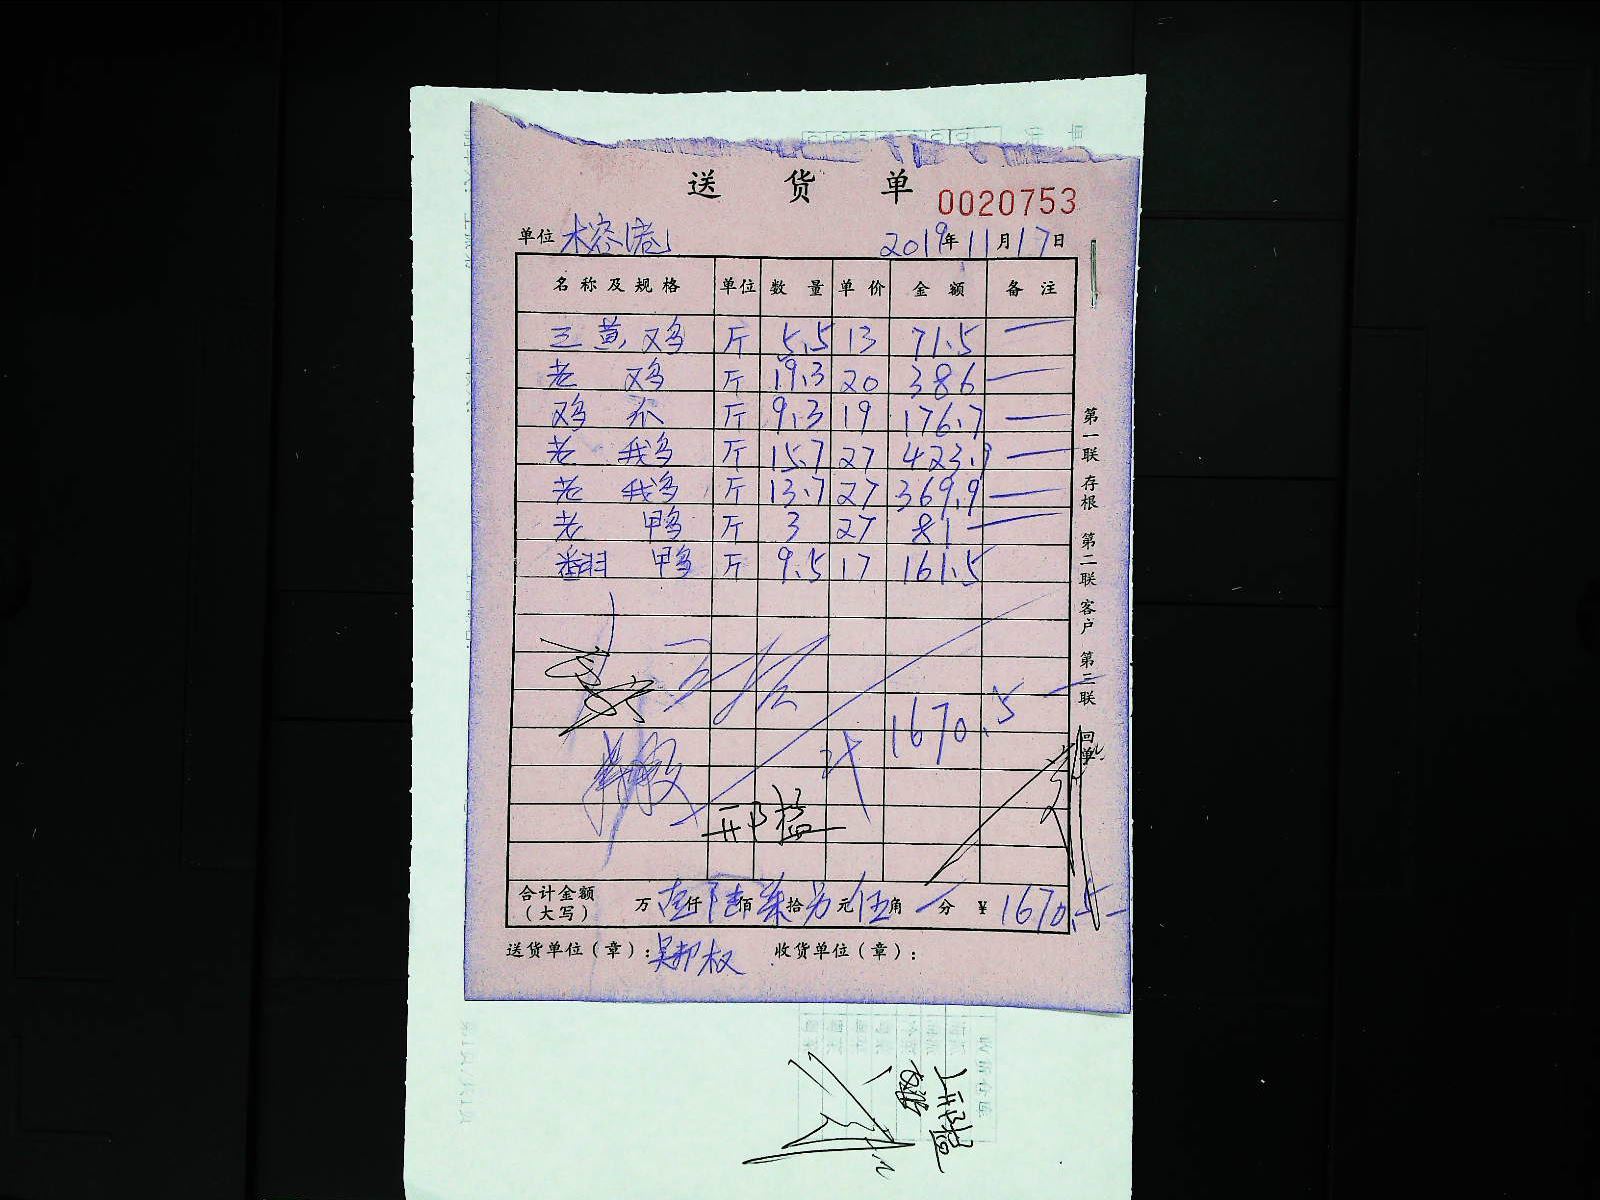 送 货 单 0020753
单位 木容港 2019年11月17日
名称及规格 单位 数量 单价 金额 备注
三黄鸡 斤 5.5 13 71.5 —
老鸡 斤 19.3 20 386 —
鸡爪 斤 9.3 19 176.7 —
老鹅 斤 15.7 27 423.9 —
老鹅 斤 13.7 27 369.9 —
老鸭 斤 3 27 81 —
翻鸭 斤 9.5 17 161.5
计 1670.5
邢益
合计金额（大写） 万壹仟陆佰柒拾另元伍角—分 ¥1670.5—
送货单位（章）：吴邦权 收货单位（章）：
第一联 存根 第二联 客户 第三联 回单